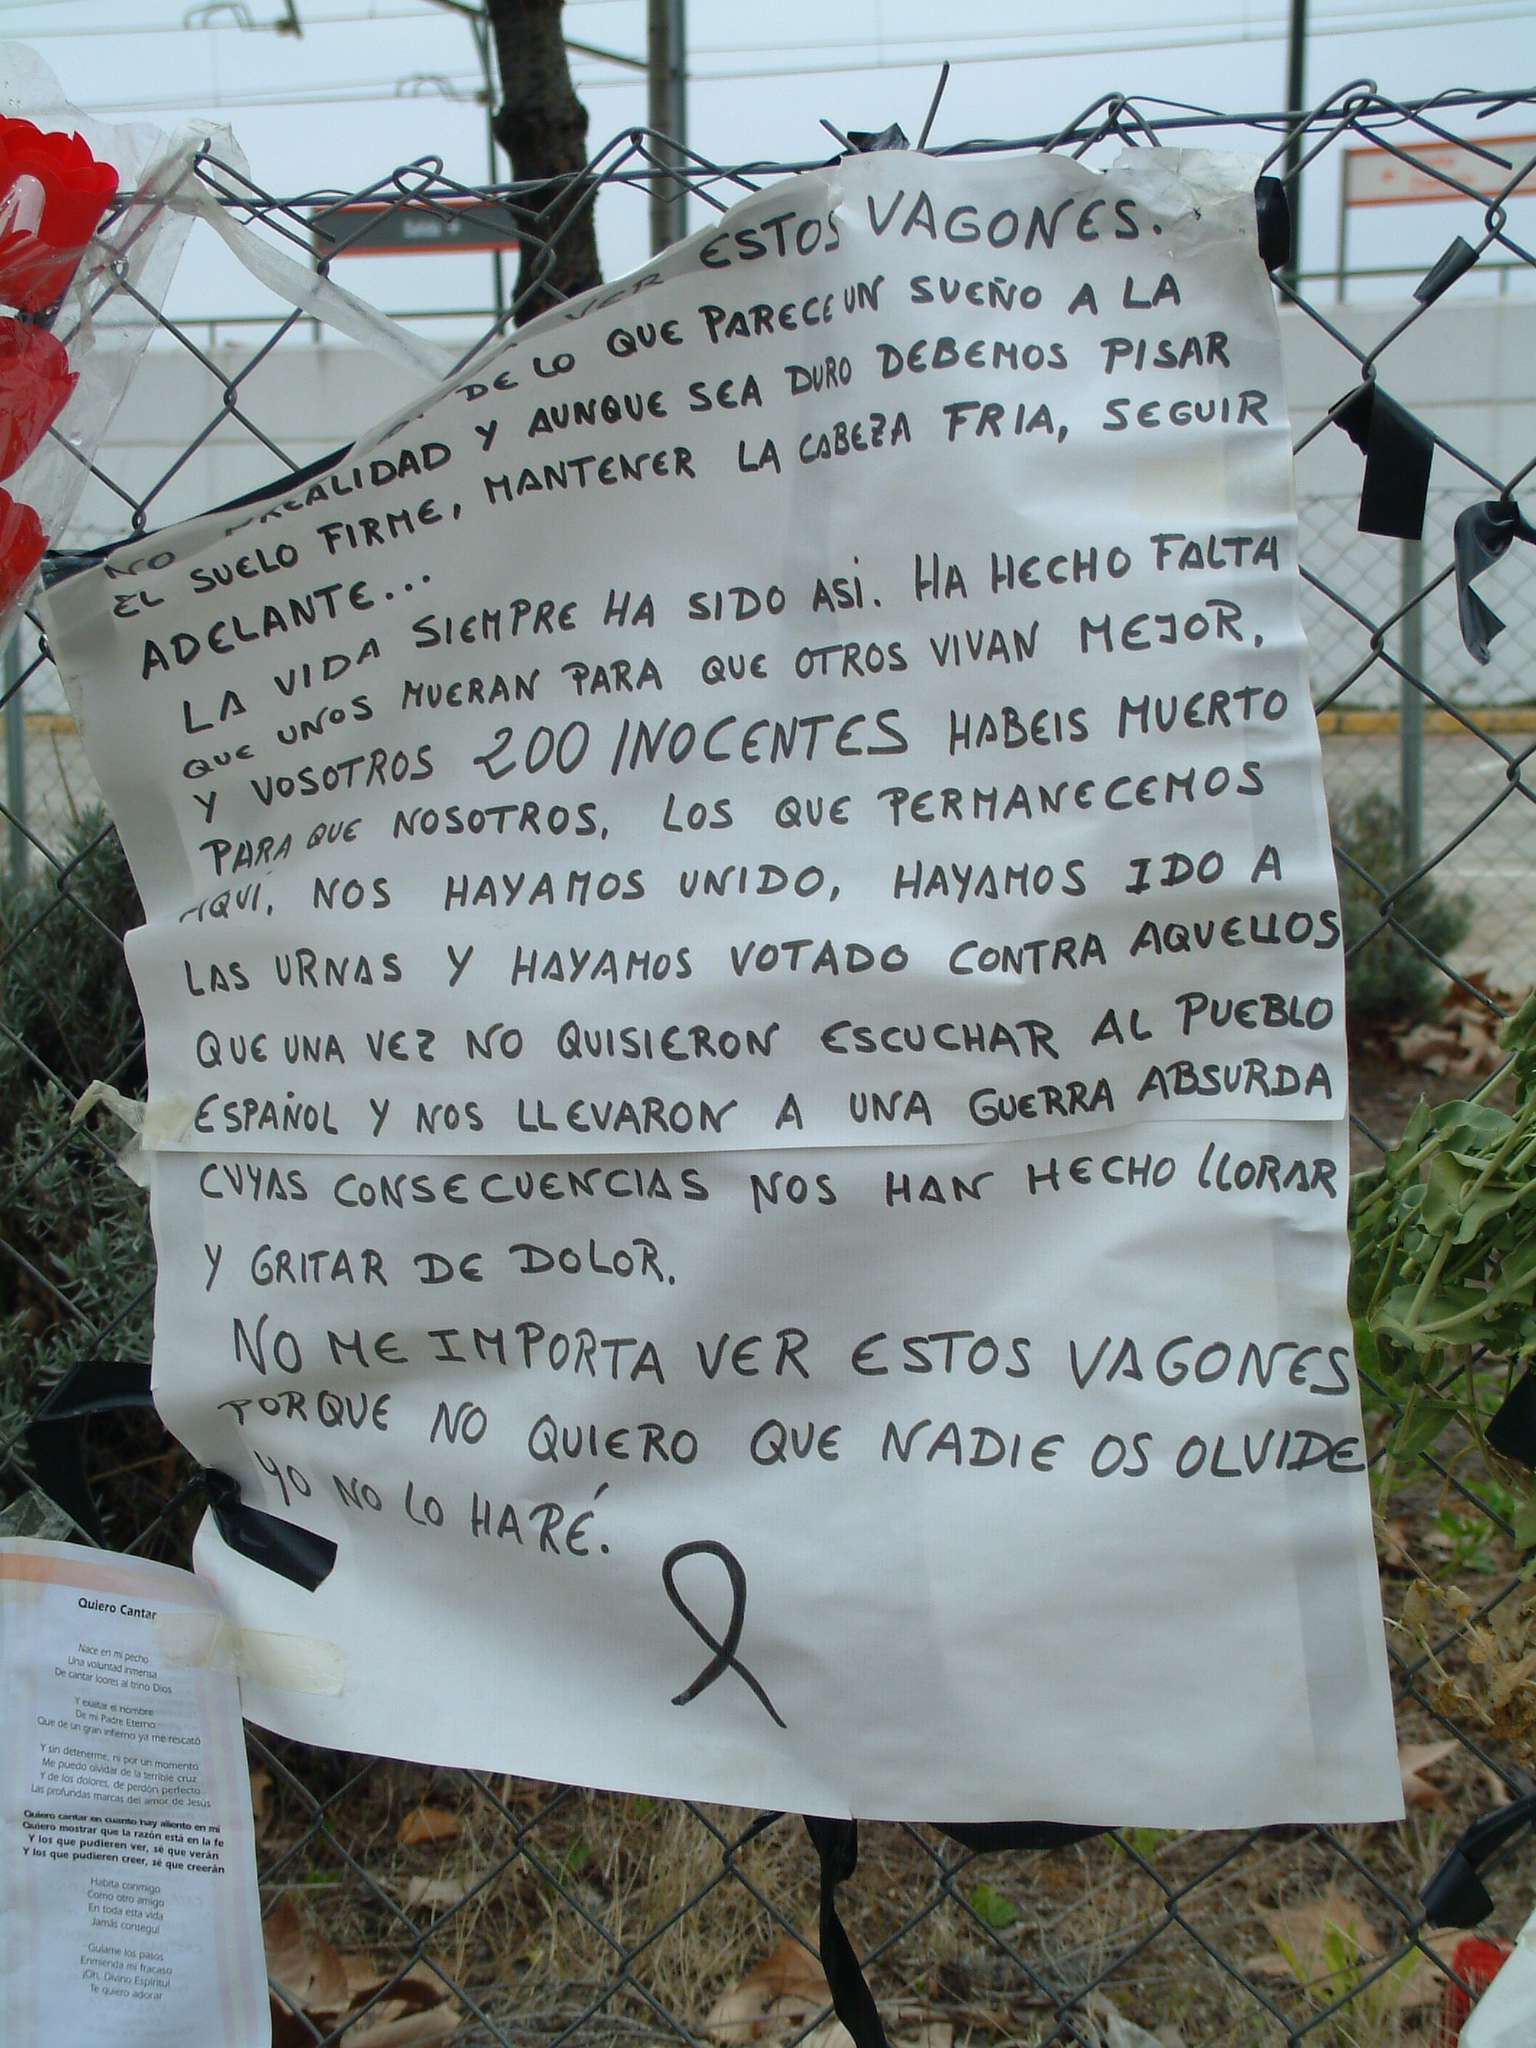 VER ESTOS VAGONES.
DE LO QUE PARECE UN SUEÑO A LA
REALIDAD Y AUNQUE SEA DURO DEBEMOS PISAR
EL SUELO FIRME, MANTENER LA CABEZA FRIA, SEGUIR
ADELANTE...
LA VIDA SIEMPRE HA SIDO ASI. HA HECHO FALTA
QUE UNOS MUERAN PARA QUE OTROS VIVAN MEJOR,
Y VOSOTROS 200 INOCENTES HABEIS MUERTO
PARA QUE NOSOTROS, LOS QUE PERMANECEMOS
AQUÍ, NOS HAYAMOS UNIDO, HAYAMOS IDO A
LAS URNAS Y HAYAMOS VOTADO CONTRA AQUELLOS
QUE UNA VEZ NO QUISIERON ESCUCHAR AL PUEBLO
ESPAÑOL Y NOS LLEVARON A UNA GUERRA ABSURDA
CUYAS CONSECUENCIAS NOS HAN HECHO LLORAR
Y GRITAR DE DOLOR.
NO ME IMPORTA VER ESTOS VAGONES
PORQUE NO QUIERO QUE NADIE OS OLVIDE
YO NO LO HARÉ.
Quiero Cantar
Nace en mi pecho
Una voluntad inmensa
De cantar loores al trino Dios
Y exaltar el nombre
De mi Padre Eterno
Que de un gran infierno ya me rescató
Y sin detenerme, ni por un momento
Me puedo olvidar de la terrible cruz
Y de los dolores, de perdón perfecto
Las profundas marcas del amor de Jesús
Quiero cantar en cuanto hay aliento en mi
Quiero mostrar que la razón está en la fe
Y los que pudieren ver, sé que verán
Y los que pudieren creer, sé que creerán
Habita conmigo
Como otro amigo
En toda esta vida
Jamás conseguí
Guíame los pasos
Enmienda mi fracaso
¡Oh, Divino Espíritu!
Te quiero adorar